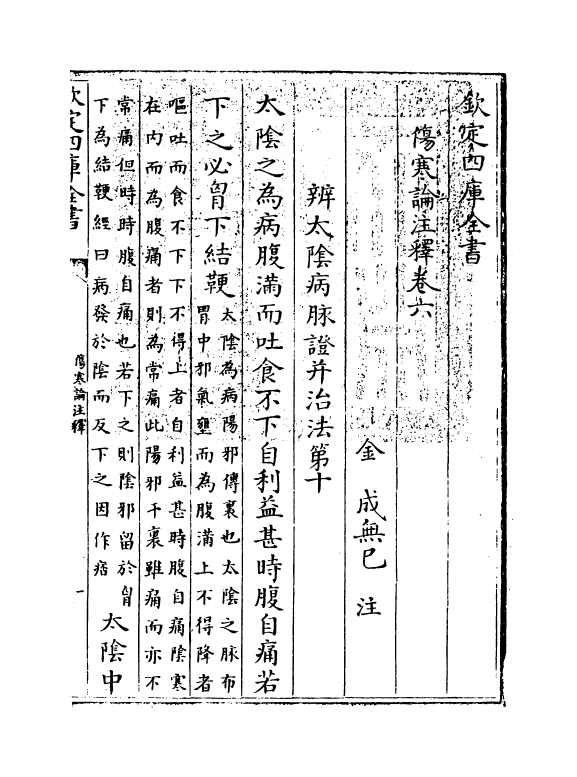 欽定四庫全書
傷寒論注釋卷六
金 成無已 注
辨太陰病脉證并治法第十
太陰之為病腹滿而吐食不下自利益甚時腹自痛若
下之必胷下結鞕
太陰為病陽邪傳裏也太陰之脉布
胃中邪氣壅而為腹滿上不得降者
嘔吐而食不下下不得上者自利益甚時腹自痛陰寒
在内而為腹痛者則為常痛此陽邪干裏雖痛而亦不
常痛但時時腹自痛也若下之則陰邪留於胷
下為結鞕經曰病發於陰而反下之因作痞
太陰中
欽定四庫全書
傷寒論注釋
一